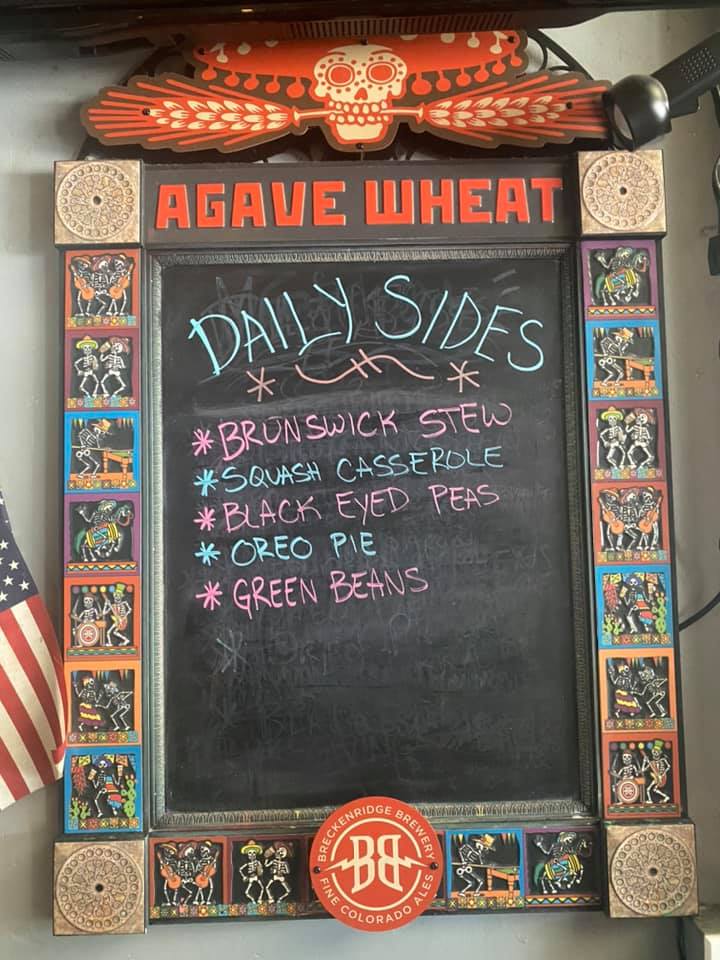 AGAVE WHEAT
DAILY SIDES
* BRUNSWICK STEW
* SQUASH CASSEROLE
* BLACK EYED PEAS
* OREO PIE
* GREEN BEANS
BRECKENRIDGE BREWERY
BB
FINE COLORADO ALES